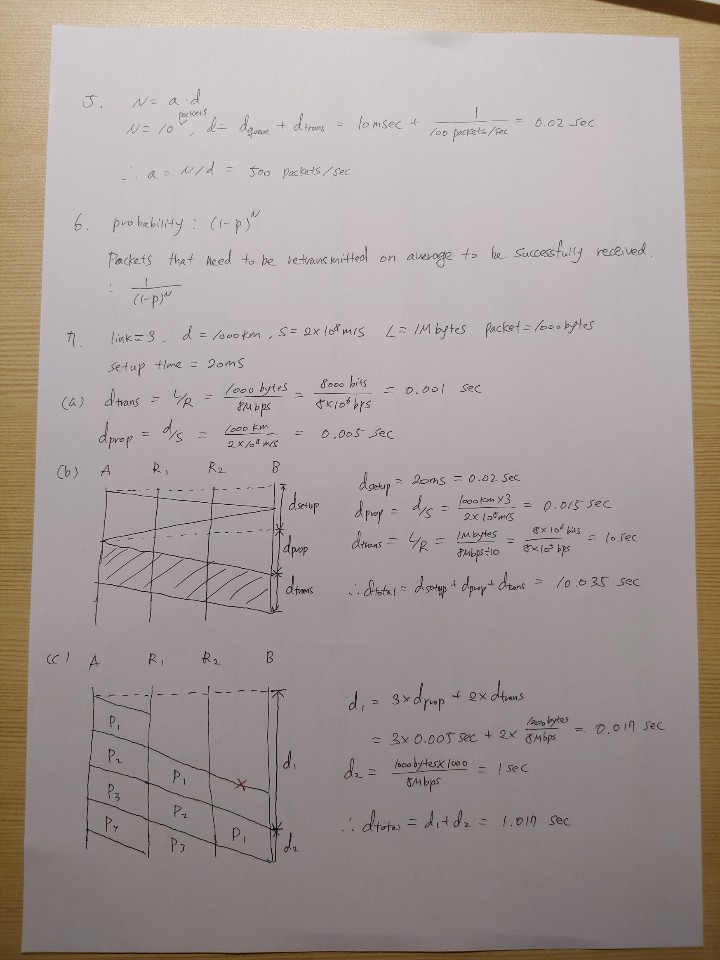 5. N = a·d
N = 10 packets, d = dqueue + dtrans = 10msec + 1/100 packets/sec = 0.02 sec
∴ a = N/d = 500 packets/sec
6. probability : (1-p)^N
Packets that need to be retransmitted on average to be successfully received.
: 1/(1-p)^N
7. link=3, d=1000km, S=2×10^8 m/s L=1Mbytes packet=1000bytes
setup time = 20ms
(a) dtrans = L/R = 1000 bytes/8Mbps = 8000 bits/8×10^6 bps = 0.001 sec
dprop = d/s = 1000 km/2×10^8 m/s = 0.005 sec
(b) A R1 R2 B
dsetup
dprop
dtrans
dsetup = 20ms = 0.02 sec
dprop = d/s = 1000km×3/2×10^8 m/s = 0.015 sec
dtrans = L/R = 1Mbytes/8Mbps÷10 = 8×10^6 bits/8×10^5 bps = 10 sec
∴ dtotal = dsetup + dprop + dtrans = 10.035 sec
(c) A R1 R2 B
P1
P2 P1
P3 P2
P4 P3 P1
d1
d2
d1 = 3×dprop + 2×dtrans
= 3×0.005 sec + 2× 1000bytes/8Mbps = 0.017 sec
d2 = 1000bytes×1000/8Mbps = 1 sec
∴ dtotal = d1+d2 = 1.017 sec